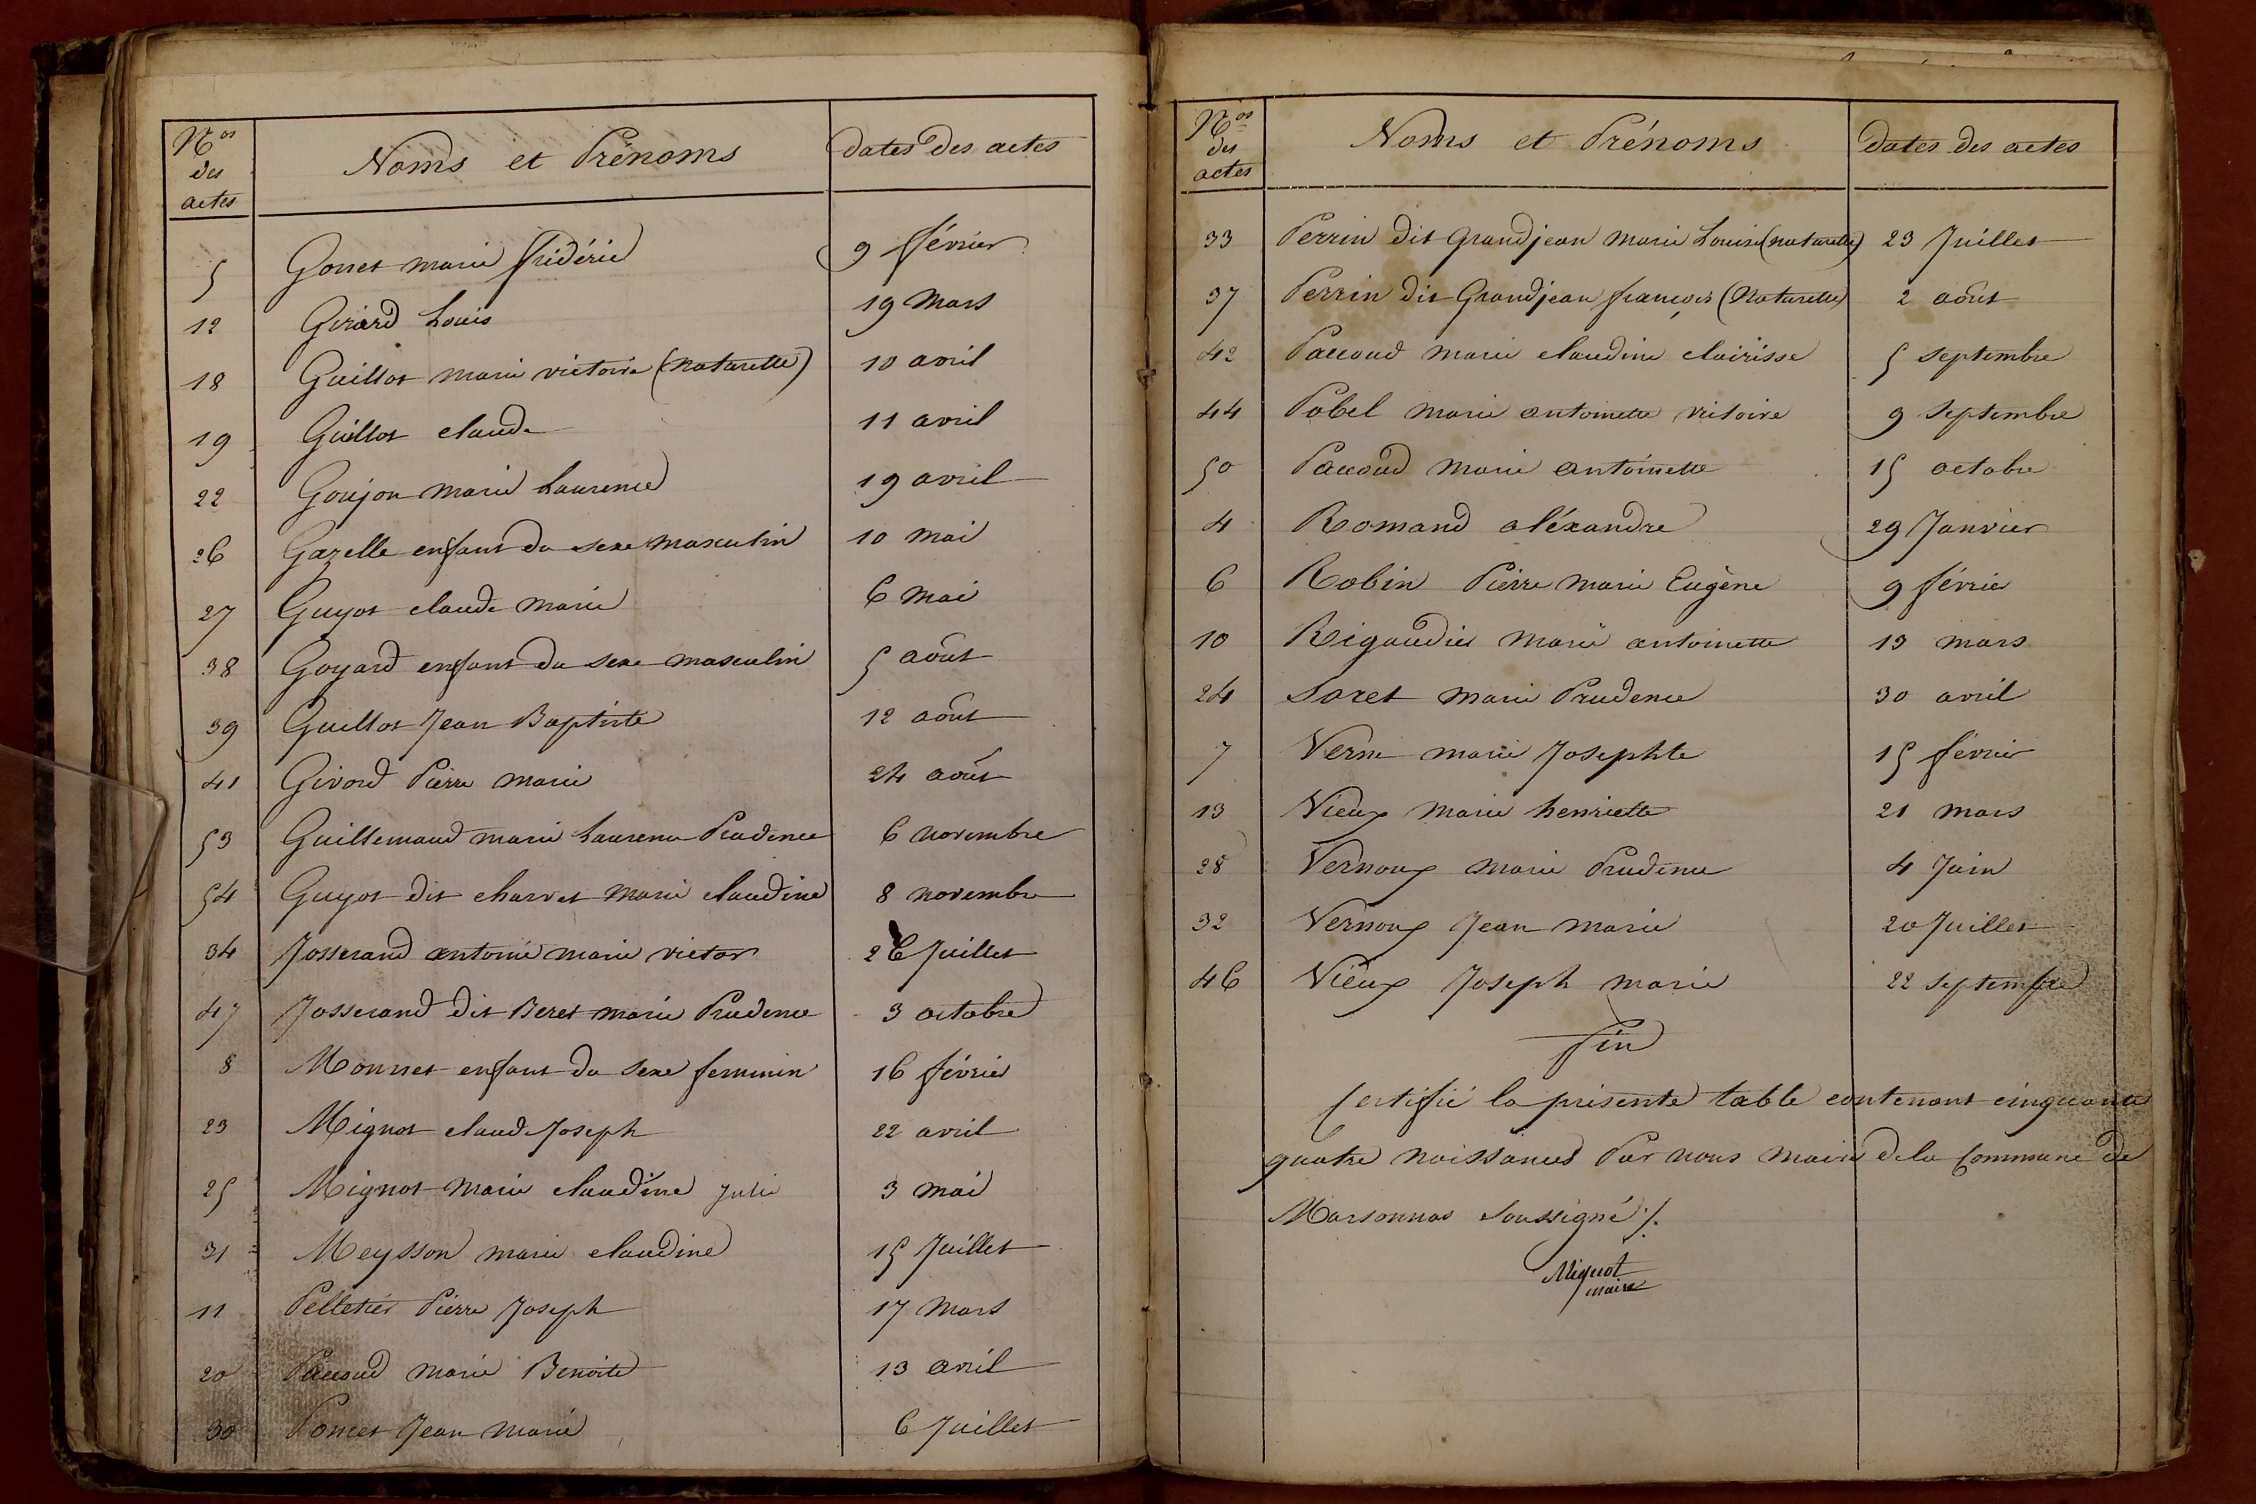 Nos des actes Noms et Prénoms dates des actes
5 Gonet marie frédéric 9 février
12 Girard Louis 19 Mars
18 Guillot marie victoire (Naturelle) 10 avril
19 Guillot claude 11 avril
22 Goujon marie Laurence 19 avril
26 Gazelle enfant du sexe masculin 10 mai
27 Guyot claude marie 6 mai
38 Goyard enfant du sexe masculin 5 août
39 Guillot Jean Baptiste 12 août
41 Givord Pierre marie 24 août
53 Guillemaud marie Laurence Prudence 6 novembre
54 Guyot dit charvet marie claudine 8 novembre
34 Josserand antoine marie victor 26 Juillet
47 Josserand dit Beret marie Prudence 3 octobre
8 Monnet enfant du sexe feminin 16 février
23 Mignot claud Joseph 22 avril
25 Mignot marie claudine Julie 3 mai
31 Meysson marie claudine 15 Juillet
11 Pelletier Pierre Joseph 17 Mars
20 Paccoud marie Benoite 13 avril
30 Poncet Jean marie 6 Juillet
Nos des actes Noms et Prénoms dates des actes
33 Perrin dit Grandjean marie Louise (naturelle) 23 Juillet
37 Perrin dit Grandjean françois (Naturelle) 2 août
42 Paccoud marie claudine clairisse 5 septembre
44 Pobel marie antoinette victoire 9 septembre
50 Paccoud marie antoinette 15 octobre
4 Romand aléxandre 29 Janvier
6 Robin Pierre marie Eugène 9 février
10 Rigaudier marie antoinette 13 mars
24 Soret marie Prudence 30 avril
7 Verne marie Josephte 15 février
13 Vieux marie henriette 21 mars
28 Vernoux marie Prudence 4 Juin
32 Vernoux Jean marie 20 Juillet
46 Vieux Joseph marie 22 septembre
fin
Certifié la présente table contenant cinquante
quatre naissances Par nous maire de la Commune de
Marsonnas soussigné ./.
Mignot
maire